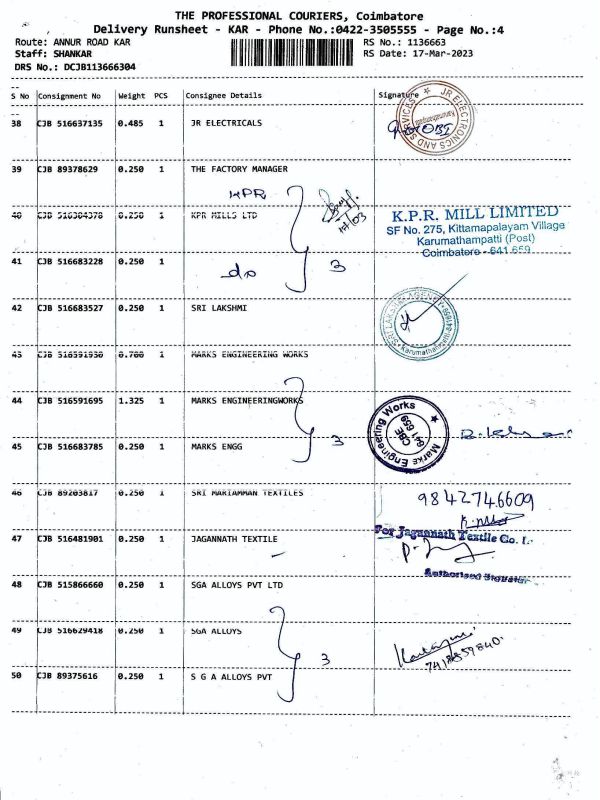 THE PROFESSIONAL COURIERS, Coimbatore
Delivery Runsheet - KAR - Phone No.:0422-3505555 - Page No.:4
Route: ANNUR ROAD KAR RS No.: 1136663
Staff: SHANKAR RS Date: 17-Mar-2023
DRS No.: DCJB113666304
S No Consignment No Weight PCS Consignee Details Signature
38 CJB 516637135 0.485 1 JR ELECTRICALS
JR ELECTRONICS AND SERVICES
39 CJB 89378629 0.250 1 THE FACTORY MANAGER
KPR
40 CJB 516304378 0.250 1 KPR MILLS LTD
17/03
K.P.R. MILL LIMITED
SF No. 275, Kittamapalayam Village
Karumathampatti (Post)
Coimbatore - 641 659
41 CJB 516683228 0.250 1
do 3
42 CJB 516683527 0.250 1 SRI LAKSHMI
SRI LAKSHMI AGENCY
43 CJB 516591930 0.700 1 MARKS ENGINEERING WORKS
44 CJB 516591695 1.325 1 MARKS ENGINEERINGWORKS
Marks Engineering Works
CBE
641 659
3
45 CJB 516683785 0.250 1 MARKS ENGG
46 CJB 89203817 0.250 1 SRI MARIAMMAN TEXTILES
9842746609
For Jagannath Textile Co. I.
47 CJB 516481901 0.250 1 JAGANNATH TEXTILE
Authorised Signatory
48 CJB 515866660 0.250 1 SGA ALLOYS PVT LTD
49 CJB 516629418 0.250 1 SGA ALLOYS
3
50 CJB 89375616 0.250 1 S G A ALLOYS PVT